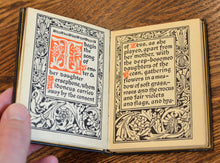 begin
the
song
of
Demeter &
her daughter
Persephone, whom
Aidoneus carried
away by the consent
of Zeus, as she
played, apart from
her mother, with
the deep-bosomed
daughters of the
Ocean, gathering
flowers in a
meadow of soft grass,
roses and the crocus
and fair violets
and flags, and